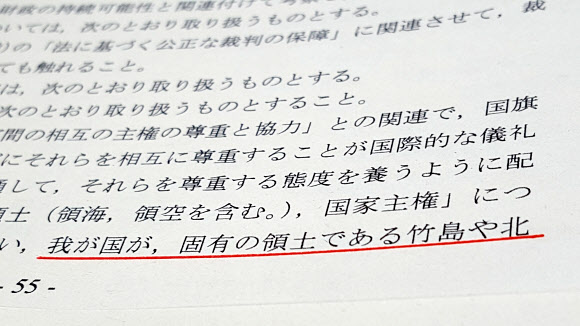 財政の持続可能性と関連付けて考察
いては，次のとおり取り扱うものとする。
りの「法に基づく公正な裁判の保障」に関連させて，裁
ても触れること。
は，次のとおり取り扱うものとする。
次のとおり取り扱うものとすること。
間の相互の主権の尊重と協力」との関連で，国旗
にそれらを相互に尊重することが国際的な儀礼
して，それらを尊重する態度を養うように配
土（領海，領空を含む。），国家主権」につ
い，我が国が，固有の領土である竹島や北
- 55 -